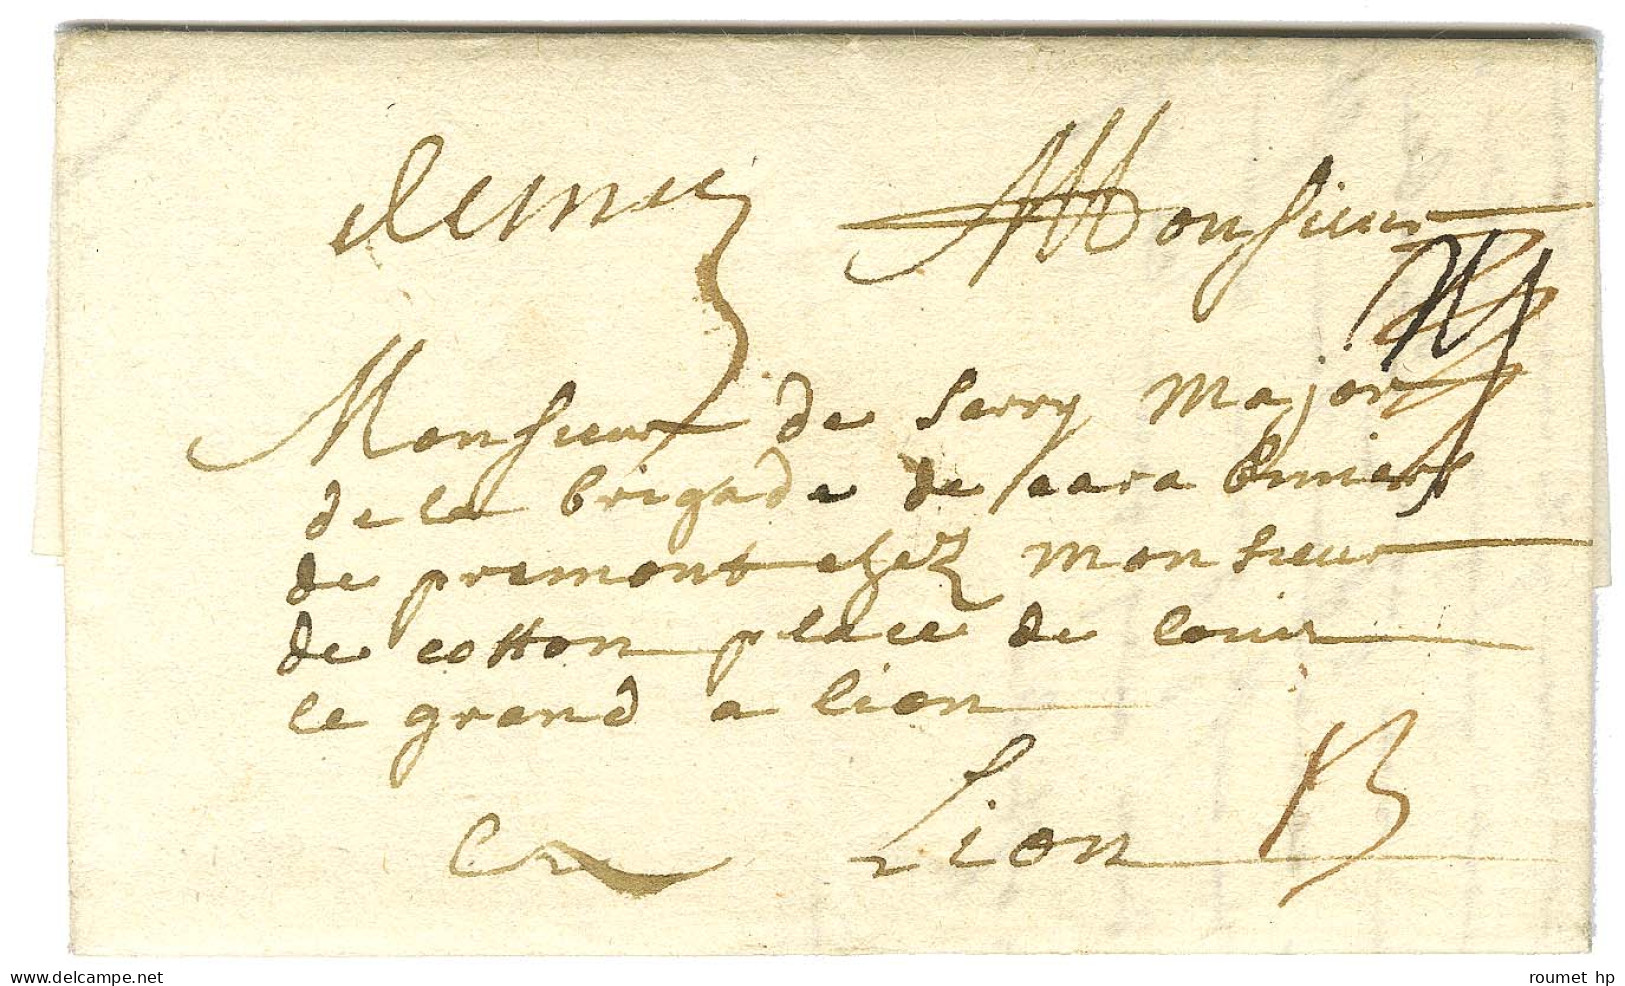 demez Monsieur
Monsieur de Serry major
de la brigade de carabiniers
de premont chez monsieur
de cotton place de Louis
le grand a lion
Lion 13
delcampe.net
roumet hp